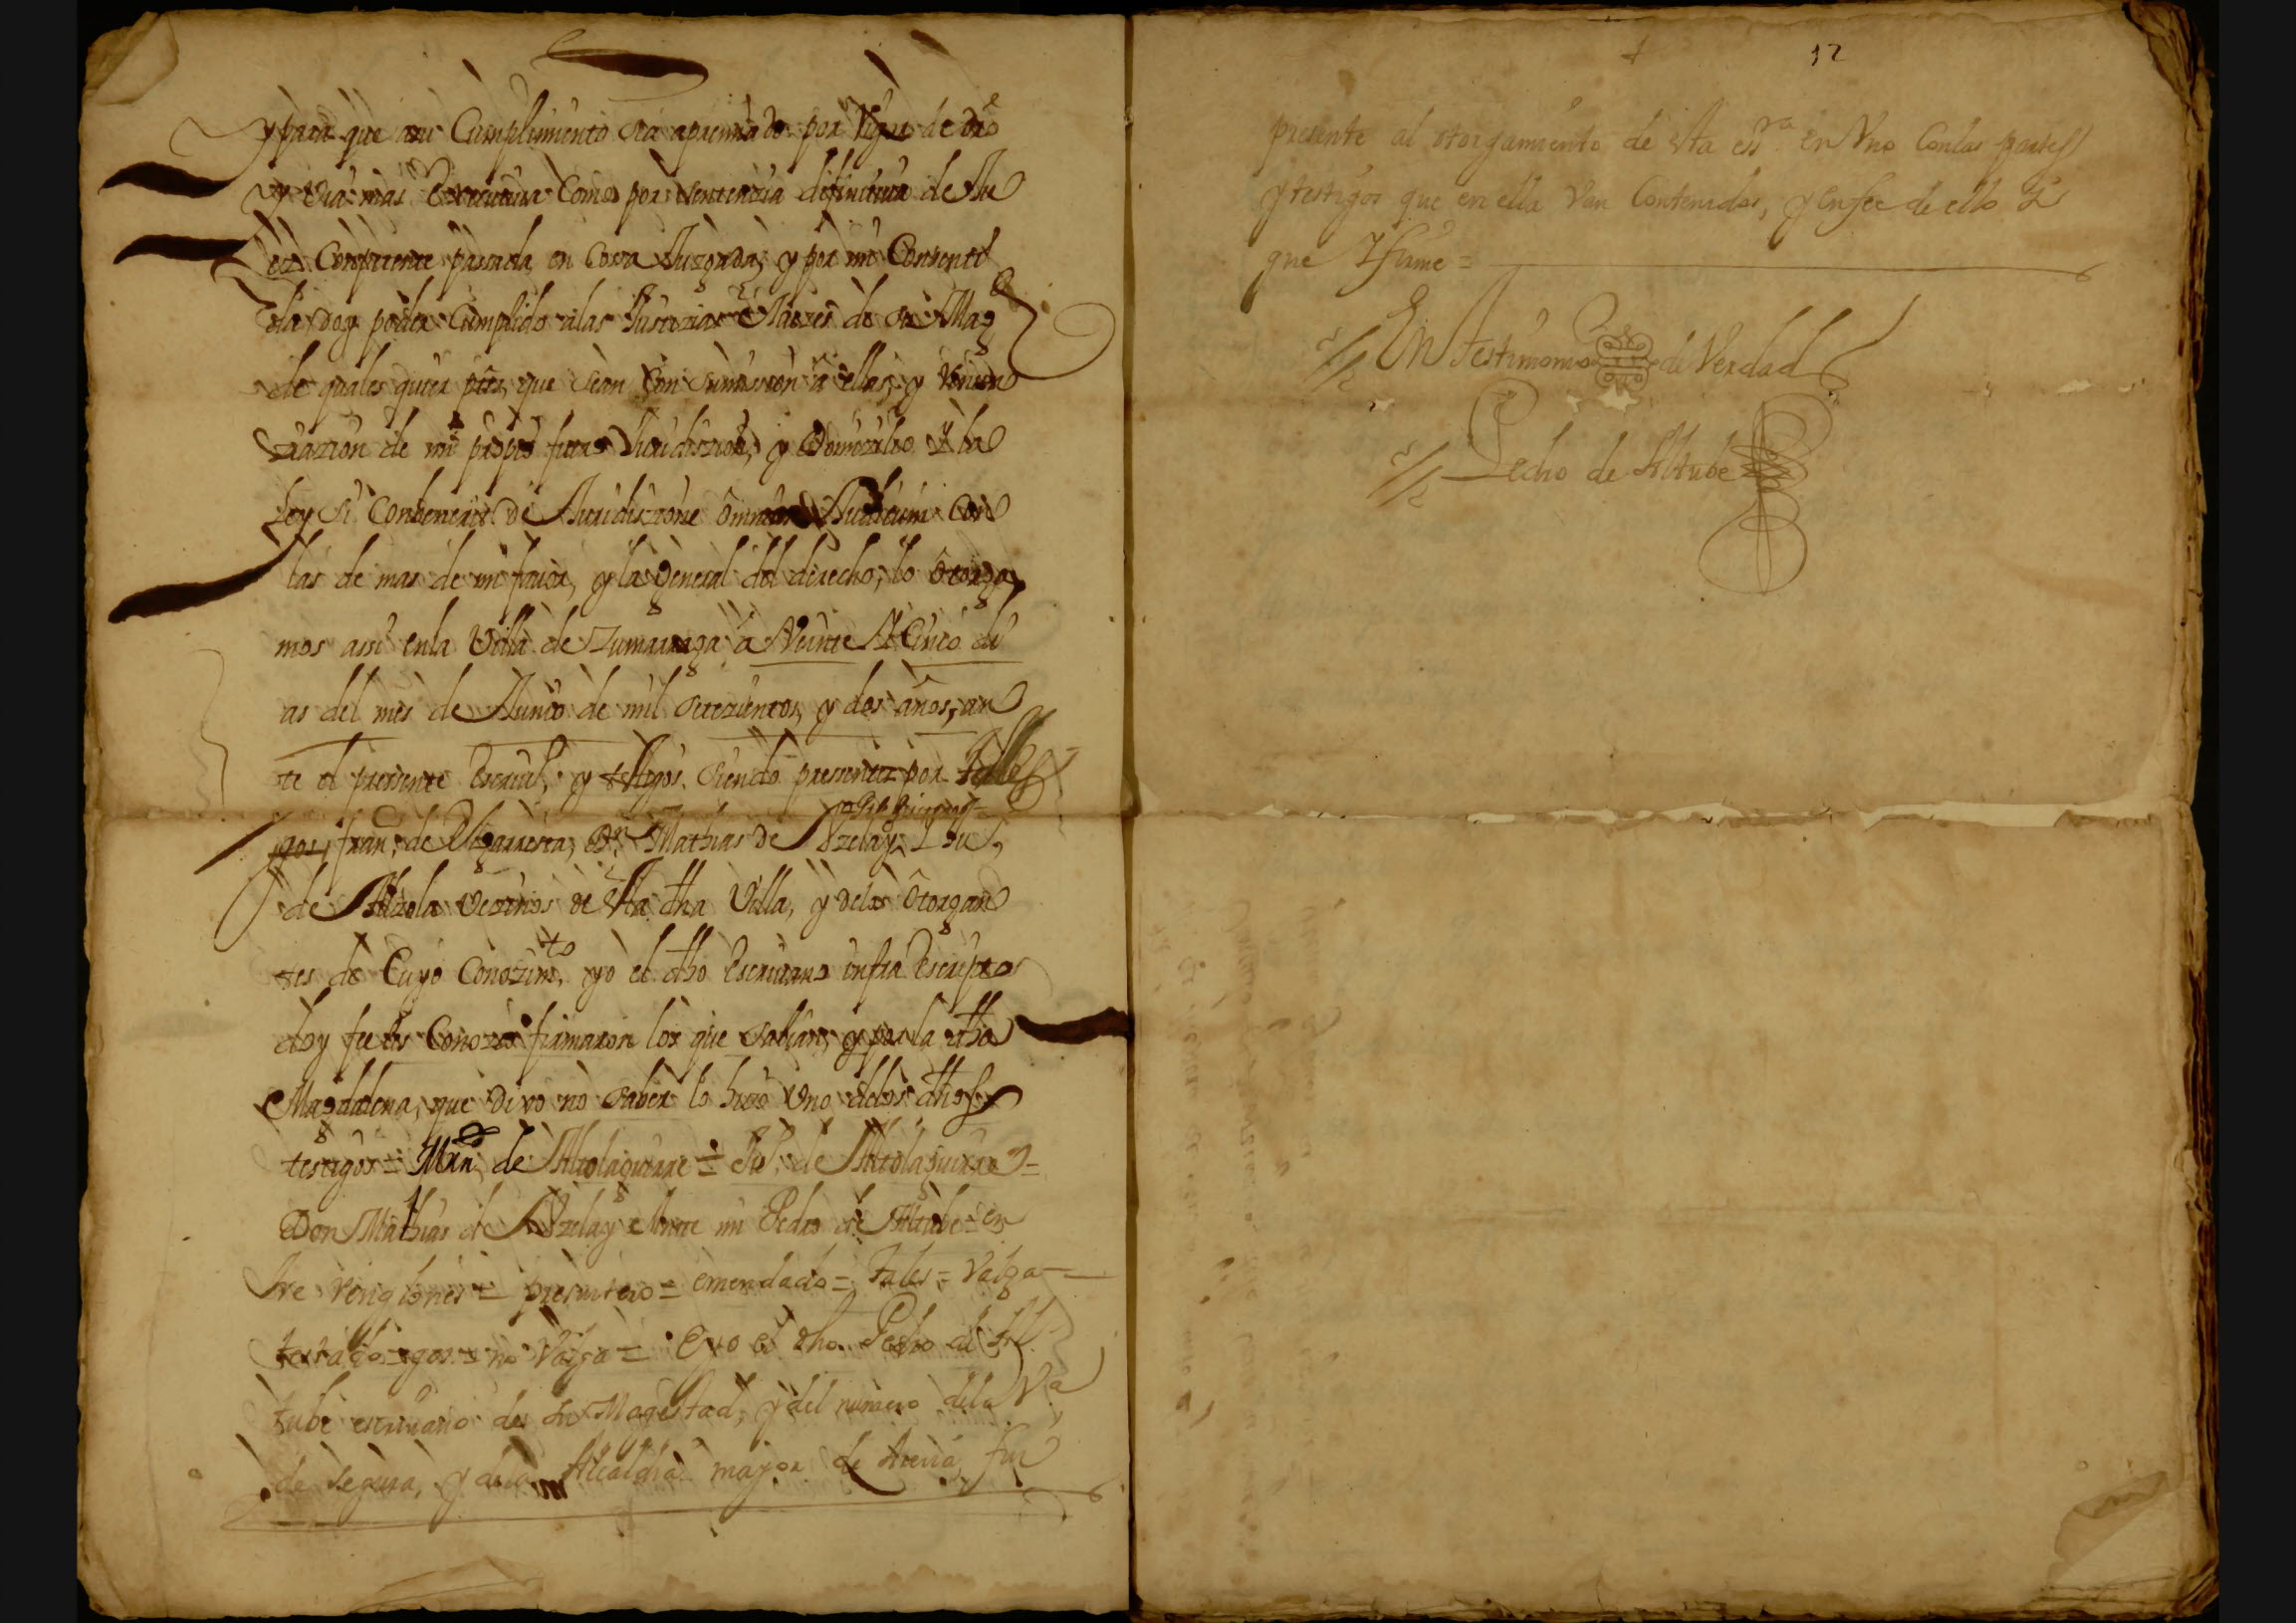 y para que a su Cumplimiento sea apremiado por Rigor de dro
y via mas executiva Como por sentenzia difinitiva de Ju
ez Competente passada en Cosa Juzgada, y por mi Consenti
da doy poder Cumplido a las Justizias e Juezes de su Magd
de quales quier ptes que sean Con sumission a ellas, y Renun
ziazion de mi propio fuero Jurisdizion, y Domizilio Y la
Ley Si Conbenerit De Jurisdizione Omnium Judicum Con
las de mas de mi favor, y la General del derecho, lo Otorga
mos assi en la Villa de Zumarraga a Veinte Y Cinco di
as del mes de Junio de mil setezientos, y dos años, an
te el presente Escriuo, y testigos, siendo presentes por tales
presuitero
gos, frano de Elgarresta, Dn Mathias de Uzelay, Y Ju
de Alzola Vezinos de esta dha Villa, y delos Otorgan
tes de Cuyo Conozimto yo el dho Escriuano infra Escripto
doy fee los Conozco firmaron los que sabian, y por la dha
Magdalena, que Dixo no saber lo hizo Uno delos dhos
testigos = Mrn de Altolaguirre = Ju de Altolaguirre =
Don Mathias de Uzelay Ante mi Pedro de Altube = en
tre Renglones = presuitero = emendado = tales = Valga
testado = gos = no Valga = E yo el dho Pedro de Al
tube escriuano de su Magestad, y del numero dela Va
de Segura, y dela Alcaldia mayor de Areria, fui
12
presente al otorgamiento de esta essra en Uno Con las partes
y testigos que en ella Van Contenidos, y en fee de ello Y
que Y firme =
En testimonio de Verdad
Pedro de Altube